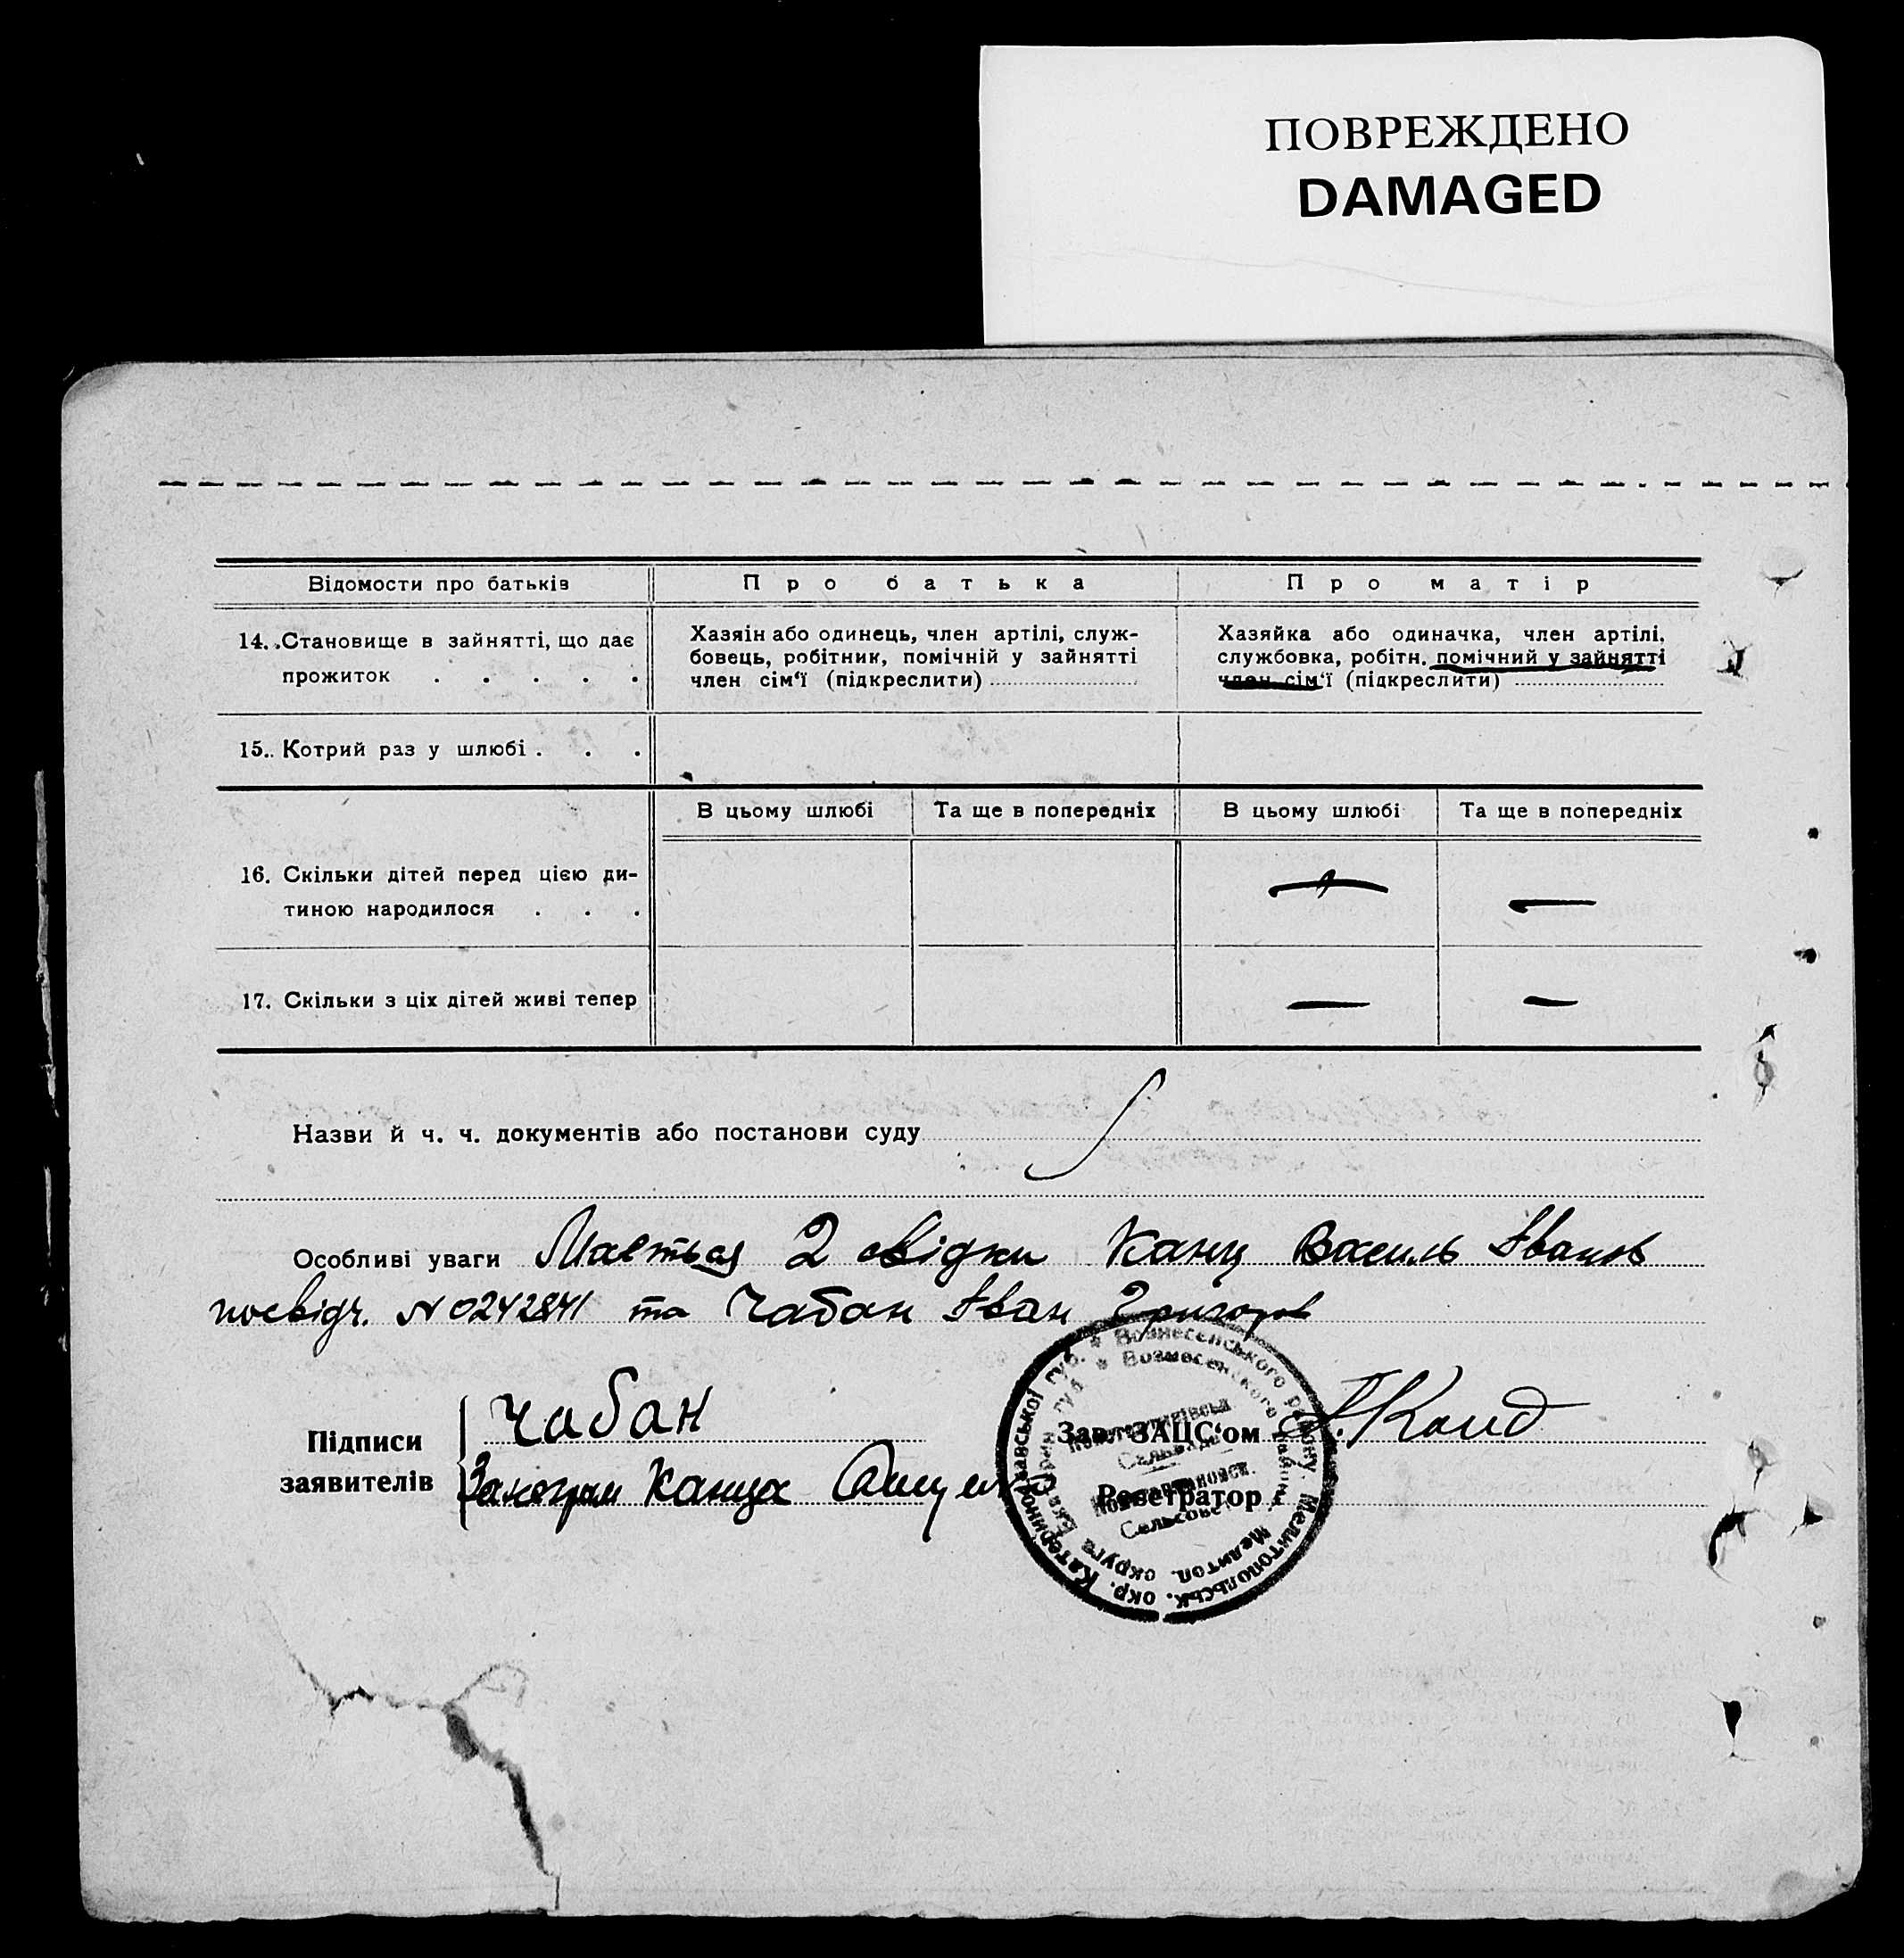 ПОВРЕЖДЕНО
DAMAGED
Відомости про батьків
Про батька
Про матір
14. Становище в зайнятті, що дає
прожиток . . . . .
Хазяін або одинець, член артілі, служ-
бовець, робітник, помічній у зайнятті
член сім'ї (підкреслити)
Хазяйка або одиначка, член артілі,
службовка, робітн. помічний у зайнятті
член сім'ї (підкреслити)
15. Котрий раз у шлюбі . . .
В цьому шлюбі
Та ще в попередніх
В цьому шлюбі
Та ще в попередніх
16. Скільки дітей перед цією ди-
тиною народилося . . .
—
—
17. Скільки з ціх дітей живі тепер
—
—
Назви й ч. ч. документів або постанови суду
Особливі уваги Мається 2 свідки Канц Василь Іванов
посвідч. № 0242841 та Чабан Іван Григоров
Підписи
заявителів
Чабан
Канца
Зав. ЗАЦС'ом
Реєстратор
Катеринославської губ. * Вознесенського району. Мелитопольськ. окр.
Екатерин губ * Вознесенского района Мелитоп. округа
Сельсовет